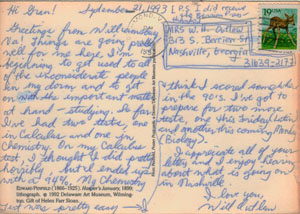 Hi Gran! September 21, 1993
Greetings from Williamsburg
Va! Things are going pretty
well for me here. I'm just
beginning to get used to all
of the inconsiderate people
in my dorm and to get
on with the important matter
at hand - studying. So far
I've had two tests, one
in Calculus and one in
Chemistry. On my Calculus
test, I thought I did pretty
horribly but I ended up
with a 94%. My Chemistry
test was pretty easy
P.S. I did receive
MRS W. H. Outlaw
313 S. Berrien St
Nashville, Georgia
31639-2197
19 USA
I think I scored somewhere
in the 90's. I've got to
prepare for two more
tests, one this Friday
and another this coming Monday
(Biology).
I appreciate all of your
letters and I enjoy hearing
about what is going on
in Nashville.
I love you,
Will Outlaw
Edward Penfield (1866-1925). Harper's January, 1899,
lithograph. © 1992 Delaware Art Museum, Wilming-
ton, Gift of Helen Farr Sloan.